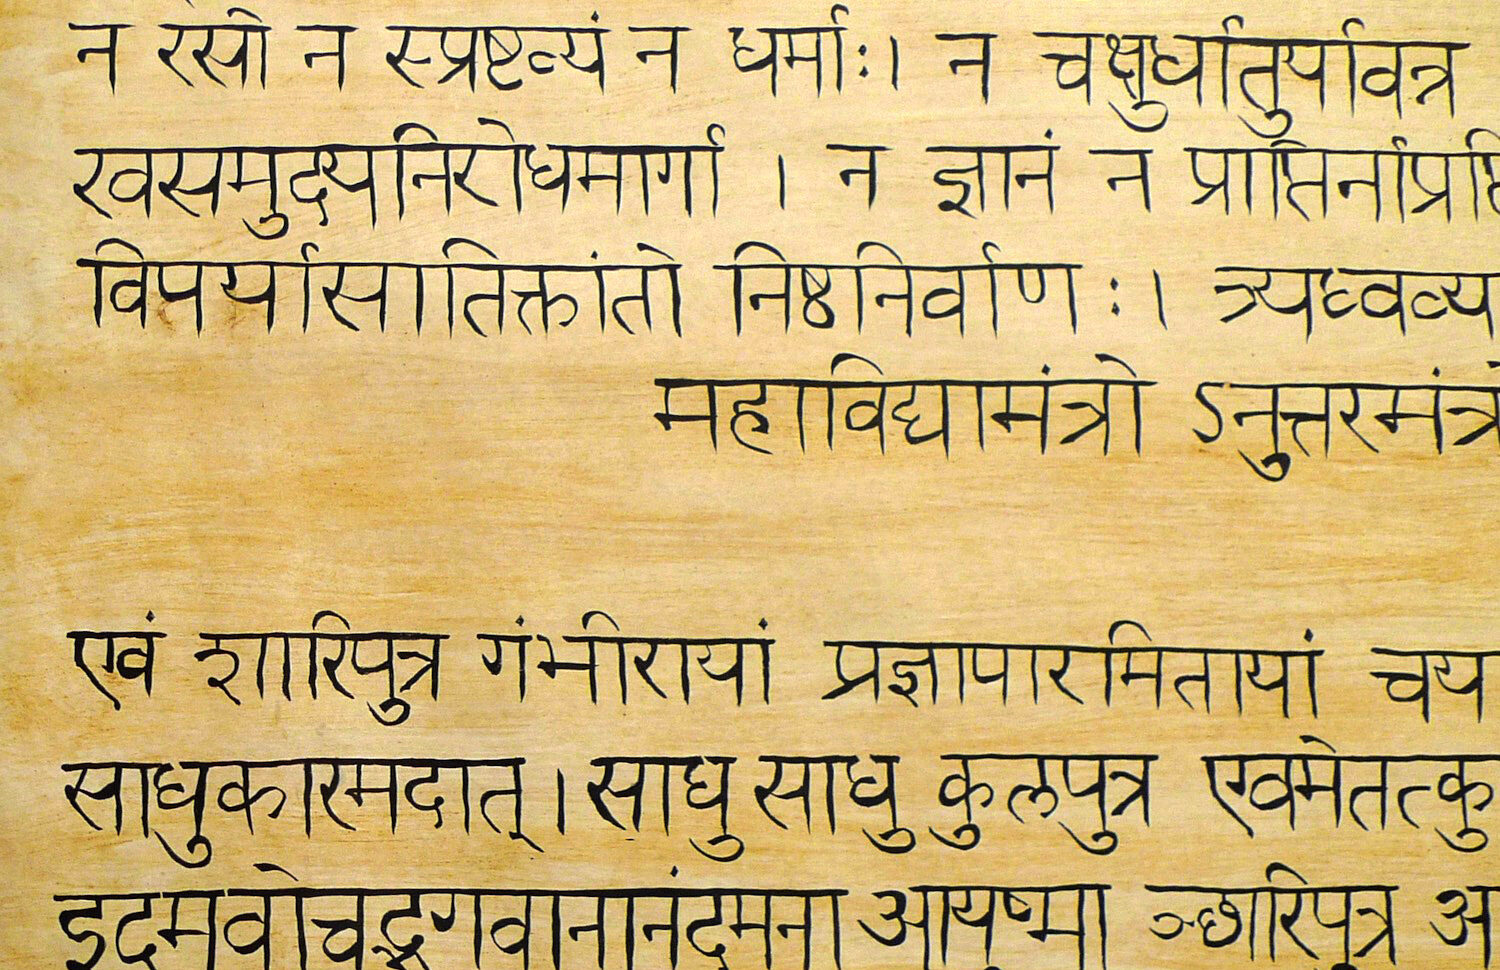 न रसो न स्प्रष्टव्यं न धर्माः। न चक्षुर्धातुर्यावन्न
खसमुदयनिरोधमार्गा । न ज्ञानं न प्राप्तिर्नाप्राप्ति
विपर्यासातिक्रांतो निष्ठनिर्वाणः। त्र्यध्वव्य
महाविद्यामंत्रो ऽनुत्तरमंत्रो
एवं शारिपुत्र गंभीरायां प्रज्ञापारमितायां चय
साधुकारमदात्। साधु साधु कुलपुत्र एवमेतत्कु
इदमवोचद्भगवानानंदमना आयुष्मा ञ्छारिपुत्र अ